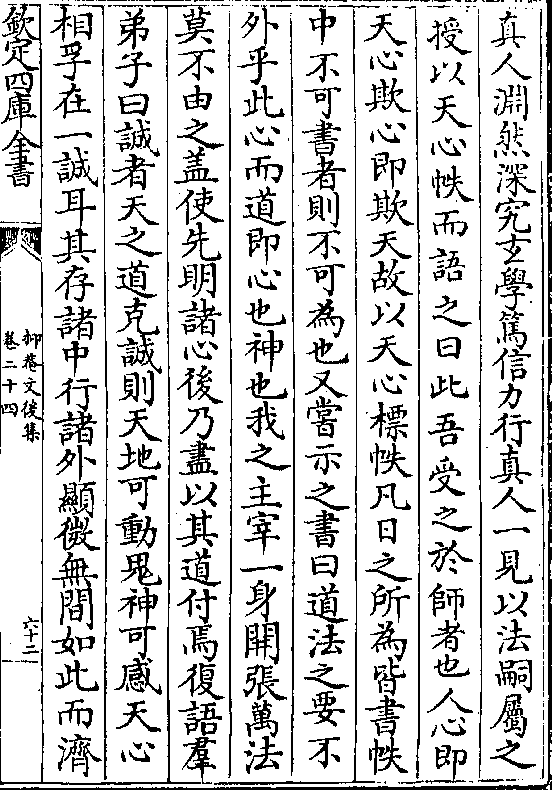 真人淵然深究玄學篤信力行真人一見以法嗣屬之
授以天心帙而語之曰此吾受之於師者也人心即
天心欺心即欺天故以天心標帙凡日之所為皆書帙
中不可書者則不可為也又嘗示之書曰道法之要不
外乎此心而道即心也神也我之主宰一身開張萬法
莫不由之盖使先明諸心後乃盡以其道付焉復語羣
弟子曰誠者天之道克誠則天地可動鬼神可感天心
相孚在一誠耳其存諸中行諸外顯微無間如此而濟
欽定四庫全書
抑菴文後集
卷二十四
六十二